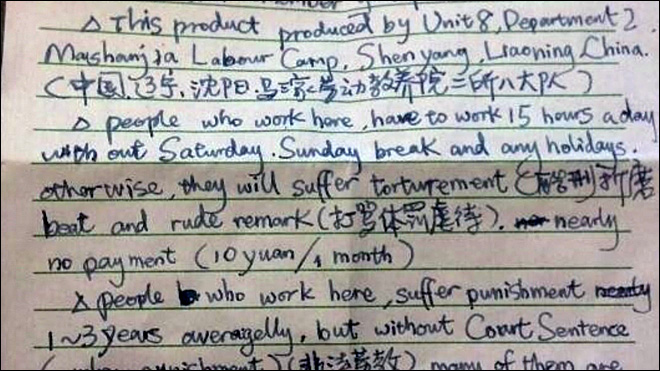 △ This product produced by Unit 8, Department 2,
Mashanjia Labour Camp, Shen yang, Liaoning, China.
(中国,辽宁,沈阳,马三家劳动教养院二所八大队)
△ people who work here, have to work 15 hours a day
with out Saturday. Sunday break and any holidays.
otherwise, they will suffer torturement ( 折磨
beat and rude remark (打骂体罚虐待). nearly
no payment (10 yuan/1 month)
△ people who work here, suffer punishment
1~3 years averagelly, but without Court Sentence
punishment) (非法劳教) many of them are